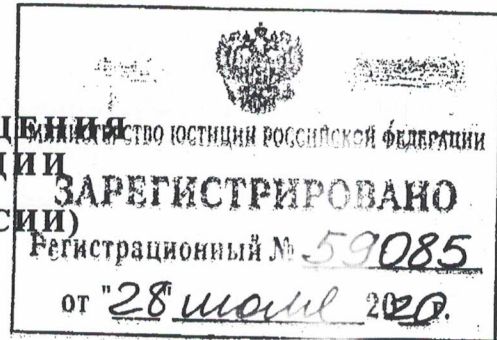 ЩЕНИЯ
МИНИСТЕРСТВО ЮСТИЦИИ РОССИЙСКОЙ ФЕДЕРАЦИИ
ЦИИ
ЗАРЕГИСТРИРОВАНО
СИИ)
Регистрационный № 59085
от "28" июля 2020 г.